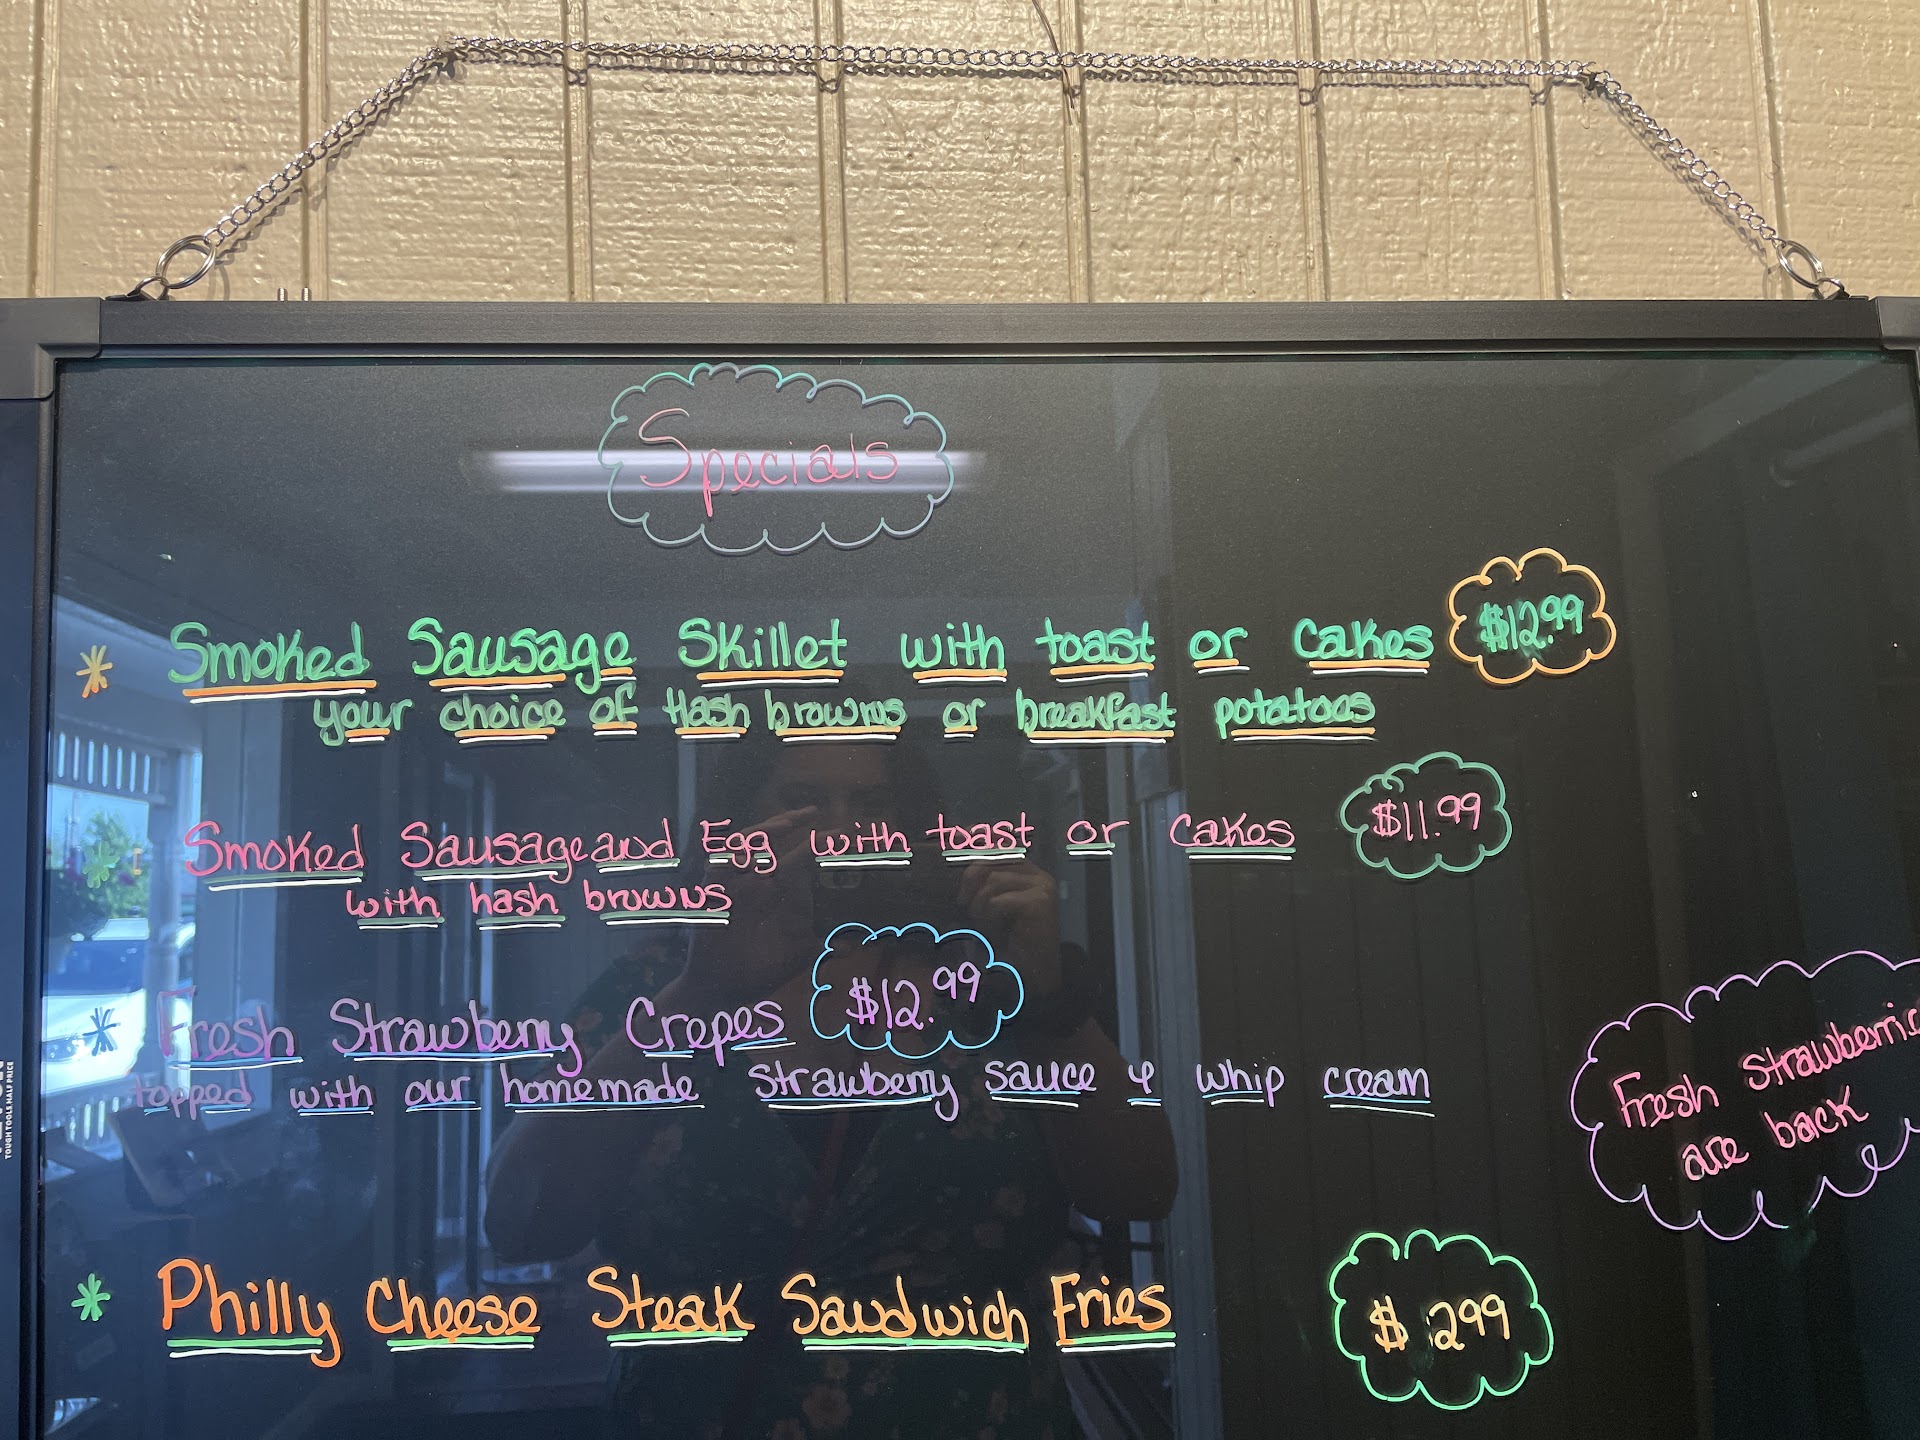 Specials
* Smoked Sausage Skillet with toast or Cakes $12.99
your choice of Hash browns or breakfast potatoes
* Smoked Sausage and Egg with toast or Cakes $11.99
with hash browns
* Fresh Strawberry Crepes $12.99
topped with our homemade Strawberry sauce & whip cream
Fresh strawberri
are back
* Philly Cheese Steak Sandwich Fries $ 299
TOUGH TOOLS.HALF PRICE